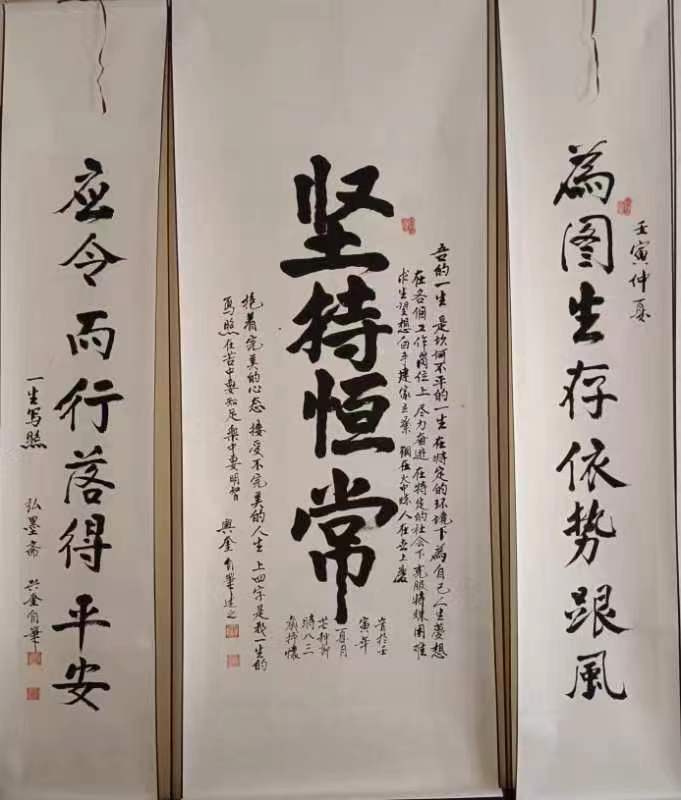 壬寅仲夏
為图生存依势跟风
坚持恒常
吾的一生 是坎坷不平的一生 在特定的环境下 為自己人生夢想
在各個工作崗位上 尽力奋进 在特定的社会下 克服特殊困难
求生望想 白手建家立業 鋼在火中炼 人在世上磨
寫於壬
寅年
夏月
芒种节
時八三
歲抒懷
抱着完美的心态 接受不完美的人生 上四字是我一生的
写照 在苦中要知足 樂中要明智 興奎自筆述之
应令而行落得平安
一生写照 弘墨斋 兴奎自筆